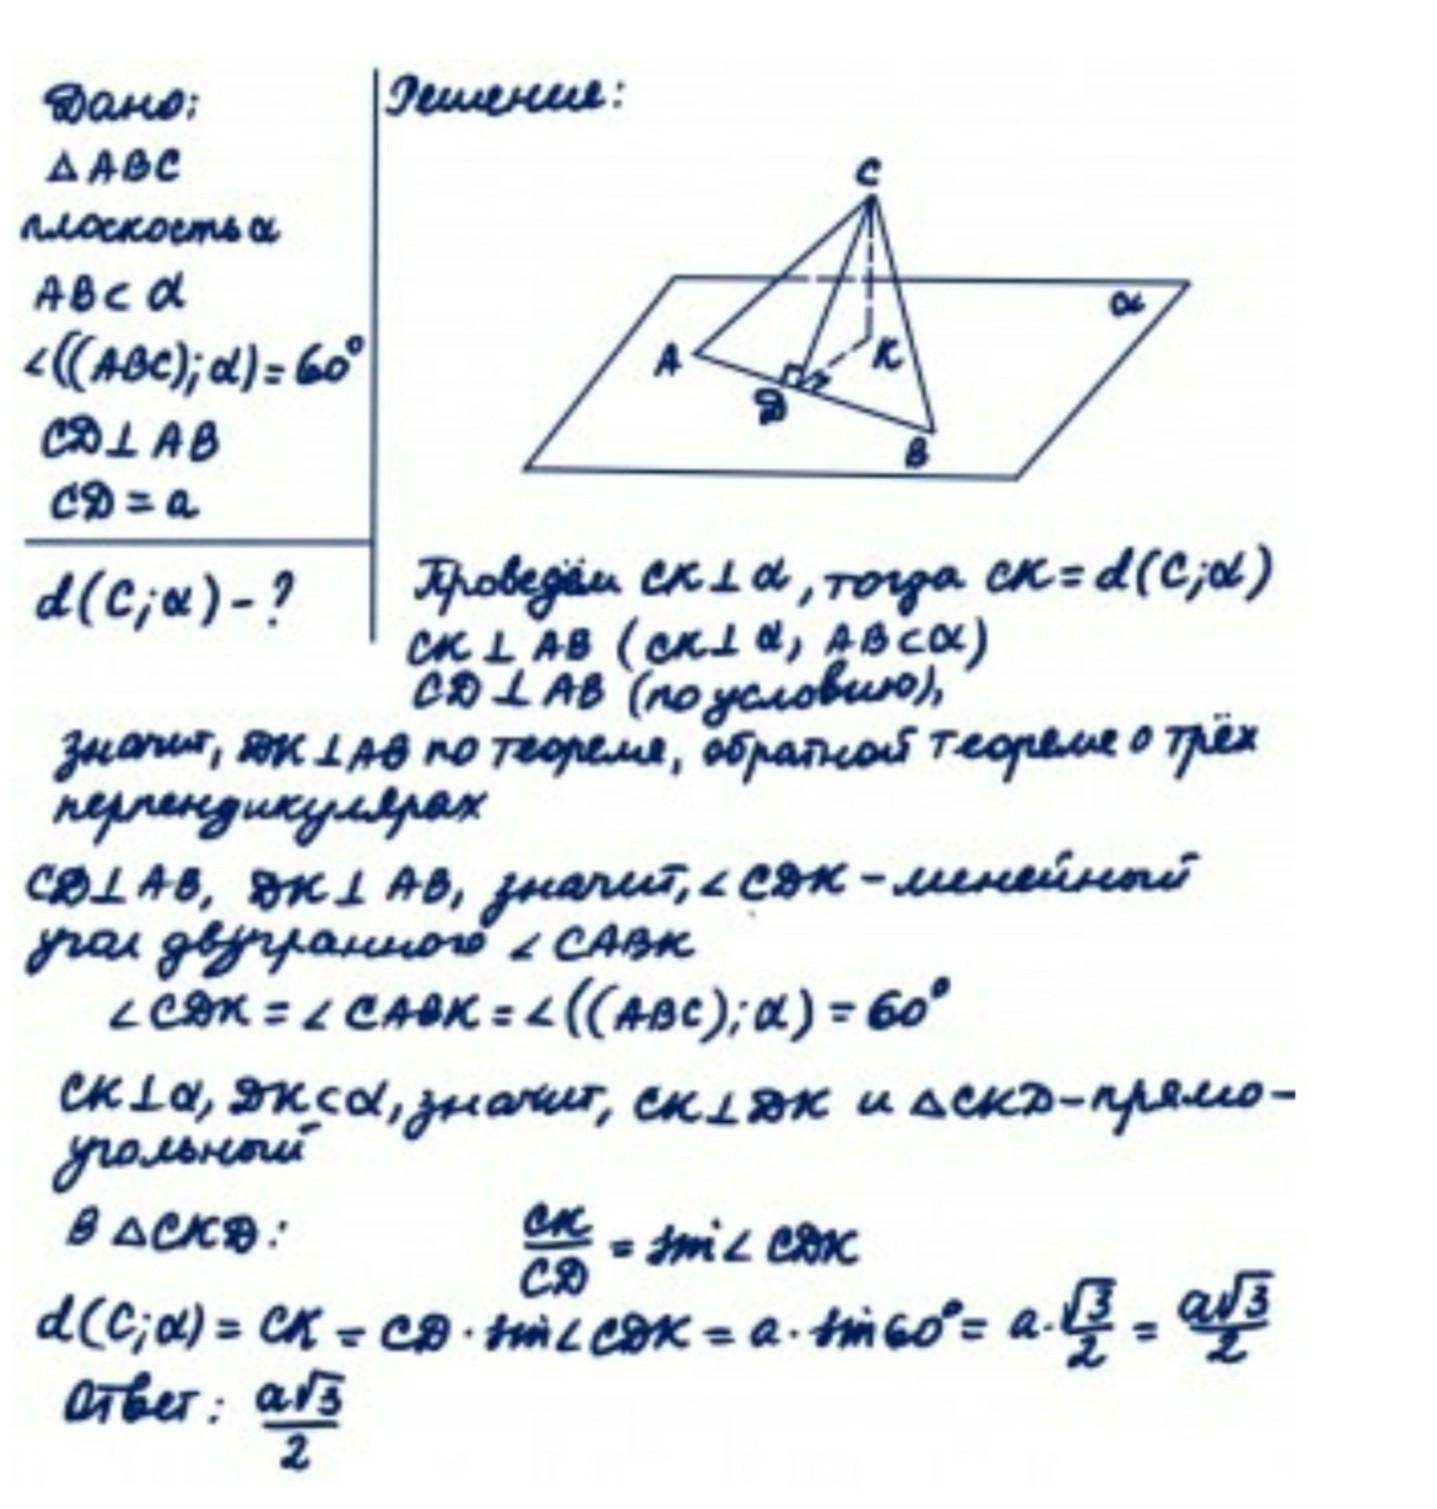 Дано:
△ABC
плоскость α
AB⊂ α
∠((ABC); α) = 60°
CD⊥ AB
CD = a
d(C; α) - ?
Решение:
C
α
A
K
D
B
Проведём CK⊥α, тогда CK = d(C; α)
CK ⊥ AB (CK⊥α, AB⊂α)
CD ⊥ AB (по условию),
значит, DK⊥AB по теореме, обратной теореме о трёх
перпендикулярах
CD⊥AB, DK⊥ AB, значит, ∠CDK - линейный
угол двугранного ∠CABK
∠CDK = ∠CABK = ∠((ABC); α) = 60°
CK⊥α, DK⊂α, значит, CK⊥DK и △CKD - прямо-
угольный
В △CKD: CK/CD = sin∠ CDK
d(C; α) = CK = CD · sin∠CDK = a · sin60° = a · √3/2 = a√3/2
Ответ: a√3/2